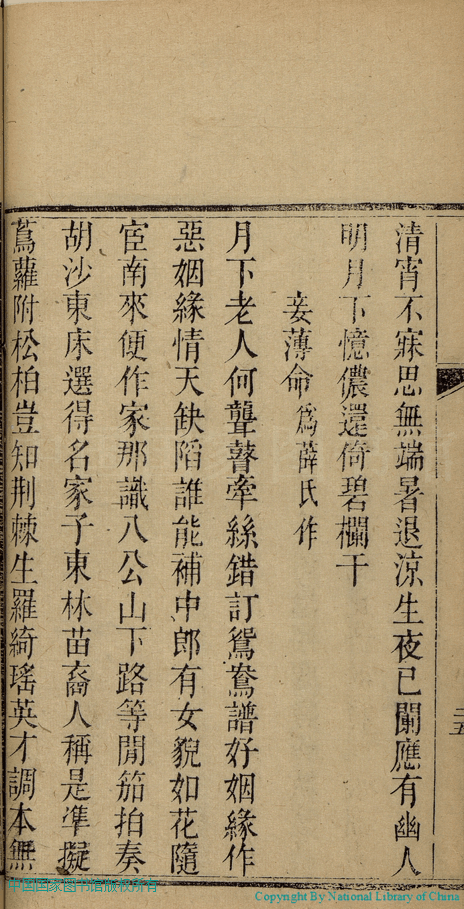 清宵不寐思無端暑退涼生夜已闌應有幽人
明月下憶儂還倚碧欄干
妾薄命為薛氏作
月下老人何聾瞽牽絲錯訂鴛鴦譜好姻緣作
惡姻緣情天缺陷誰能補中郎有女貌如花隨
宦南來便作家那識八公山下路等閒笳拍奏
胡沙東床選得名家子東林苗裔人稱是準擬
蔦蘿附松柏豈知荆棘生羅綺瑤英才調本無
中国国家图书馆版权所有
Copyright By National Library of China